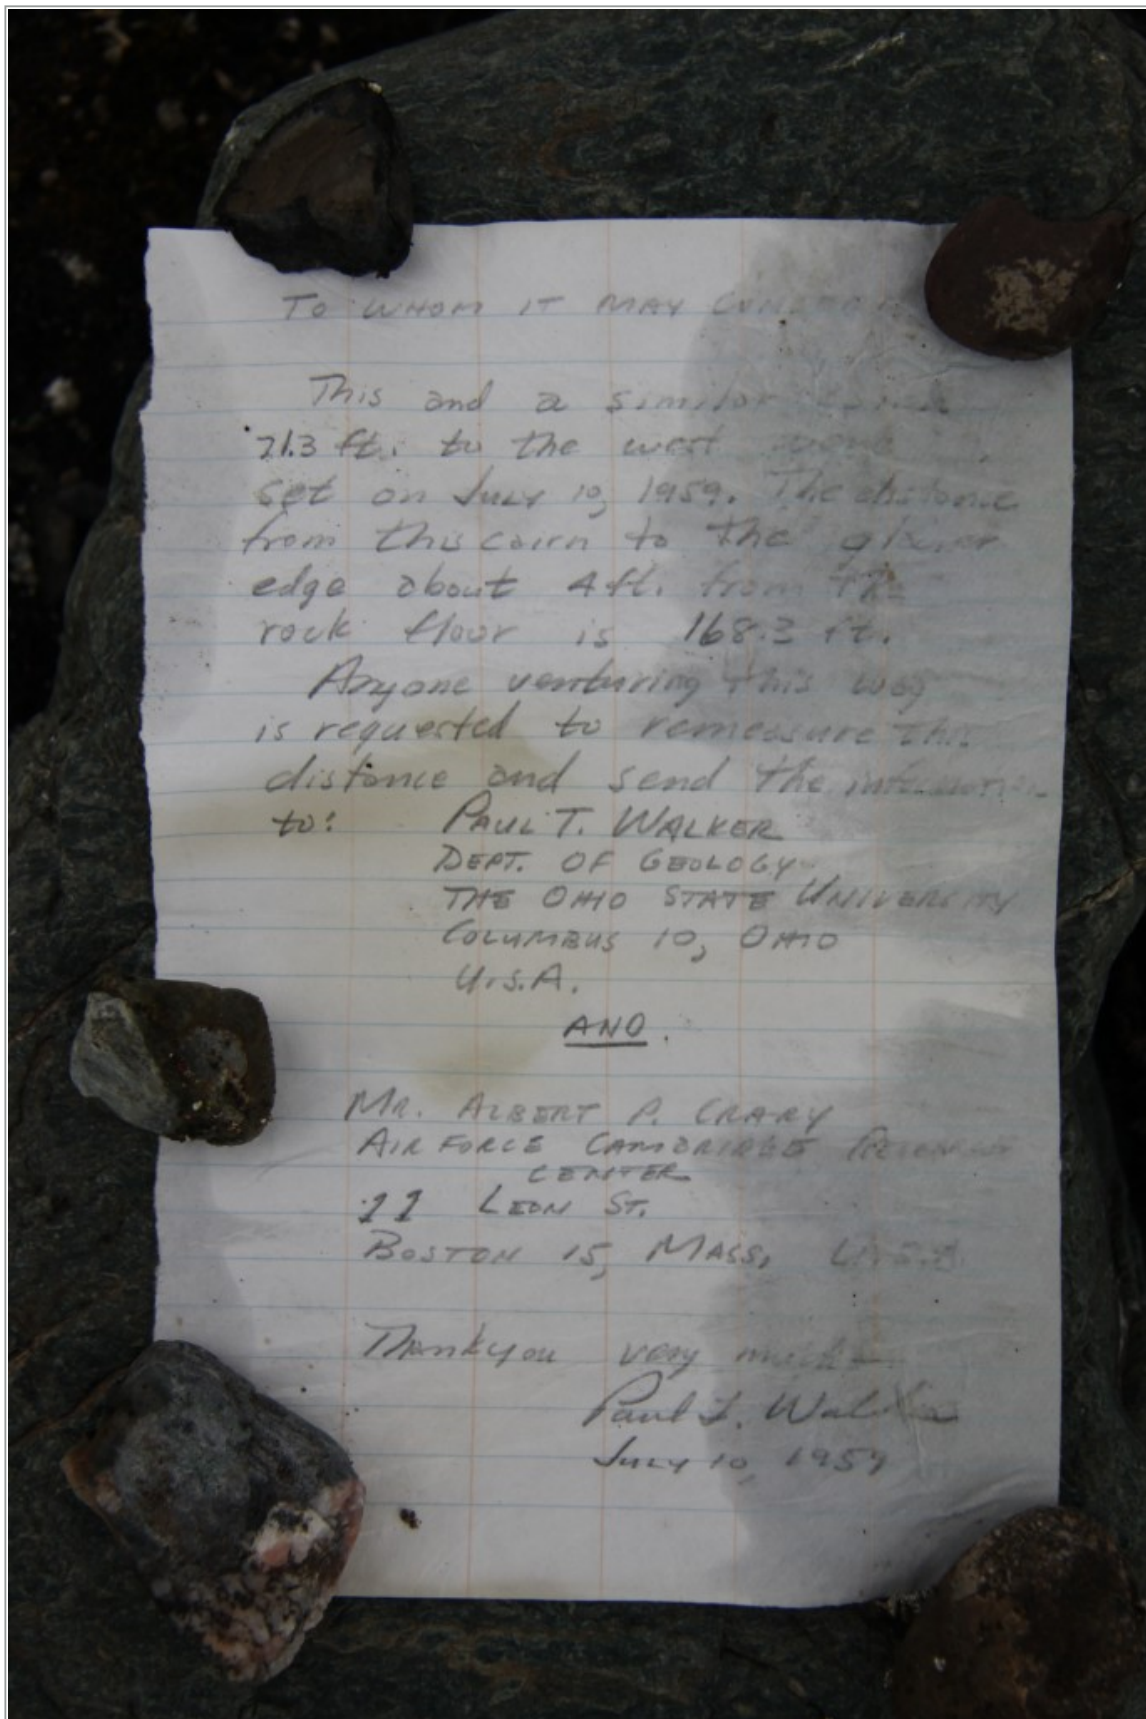 TO WHOM IT MAY CONCERN
This and a similar cairn
21.3 ft. to the west were
set on July 10, 1959. The distance
from this cairn to the glacier
edge about 4 ft. from the
rock floor is 168.3 ft.
Anyone venturing this way
is requested to remeasure this
distance and send the information
to: PAUL T. WALKER
DEPT. OF GEOLOGY
THE OHIO STATE UNIVERSITY
COLUMBUS 10, OHIO
U.S.A.
AND
MR. ALBERT P. CRARY
AIR FORCE CAMBRIDGE RESEARCH
CENTER
11 LEON ST.
BOSTON 15, MASS, U.S.A.
Thankyou very much—
Paul T. Walker
July 10, 1959